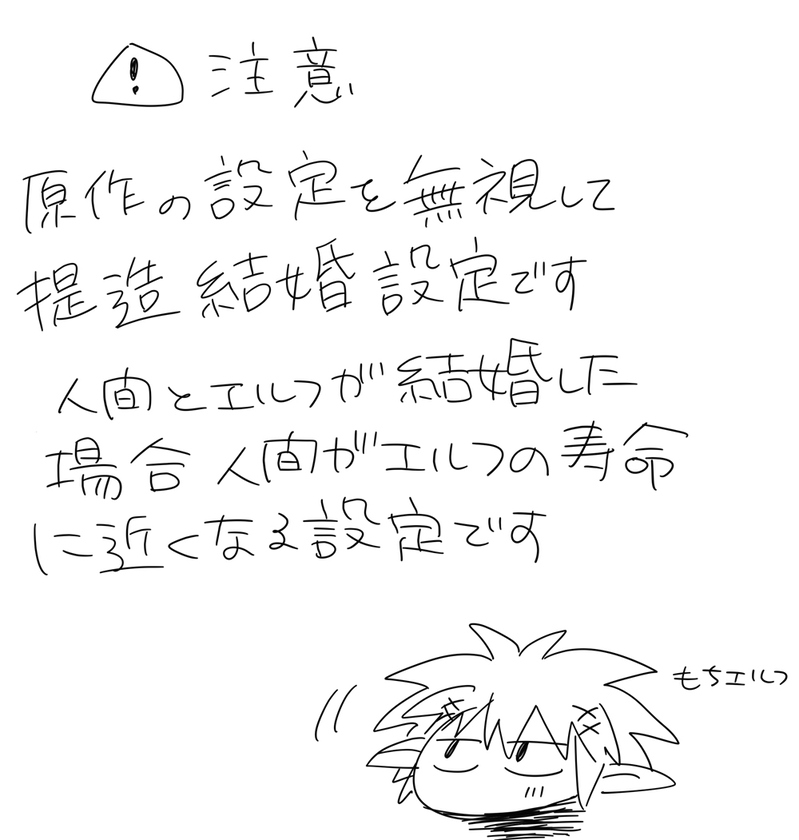 注意
原作の設定を無視して
捏造結婚設定です
人間とエルフが結婚した
場合人間がエルフの寿命
に近くなる設定です
もちエルフ